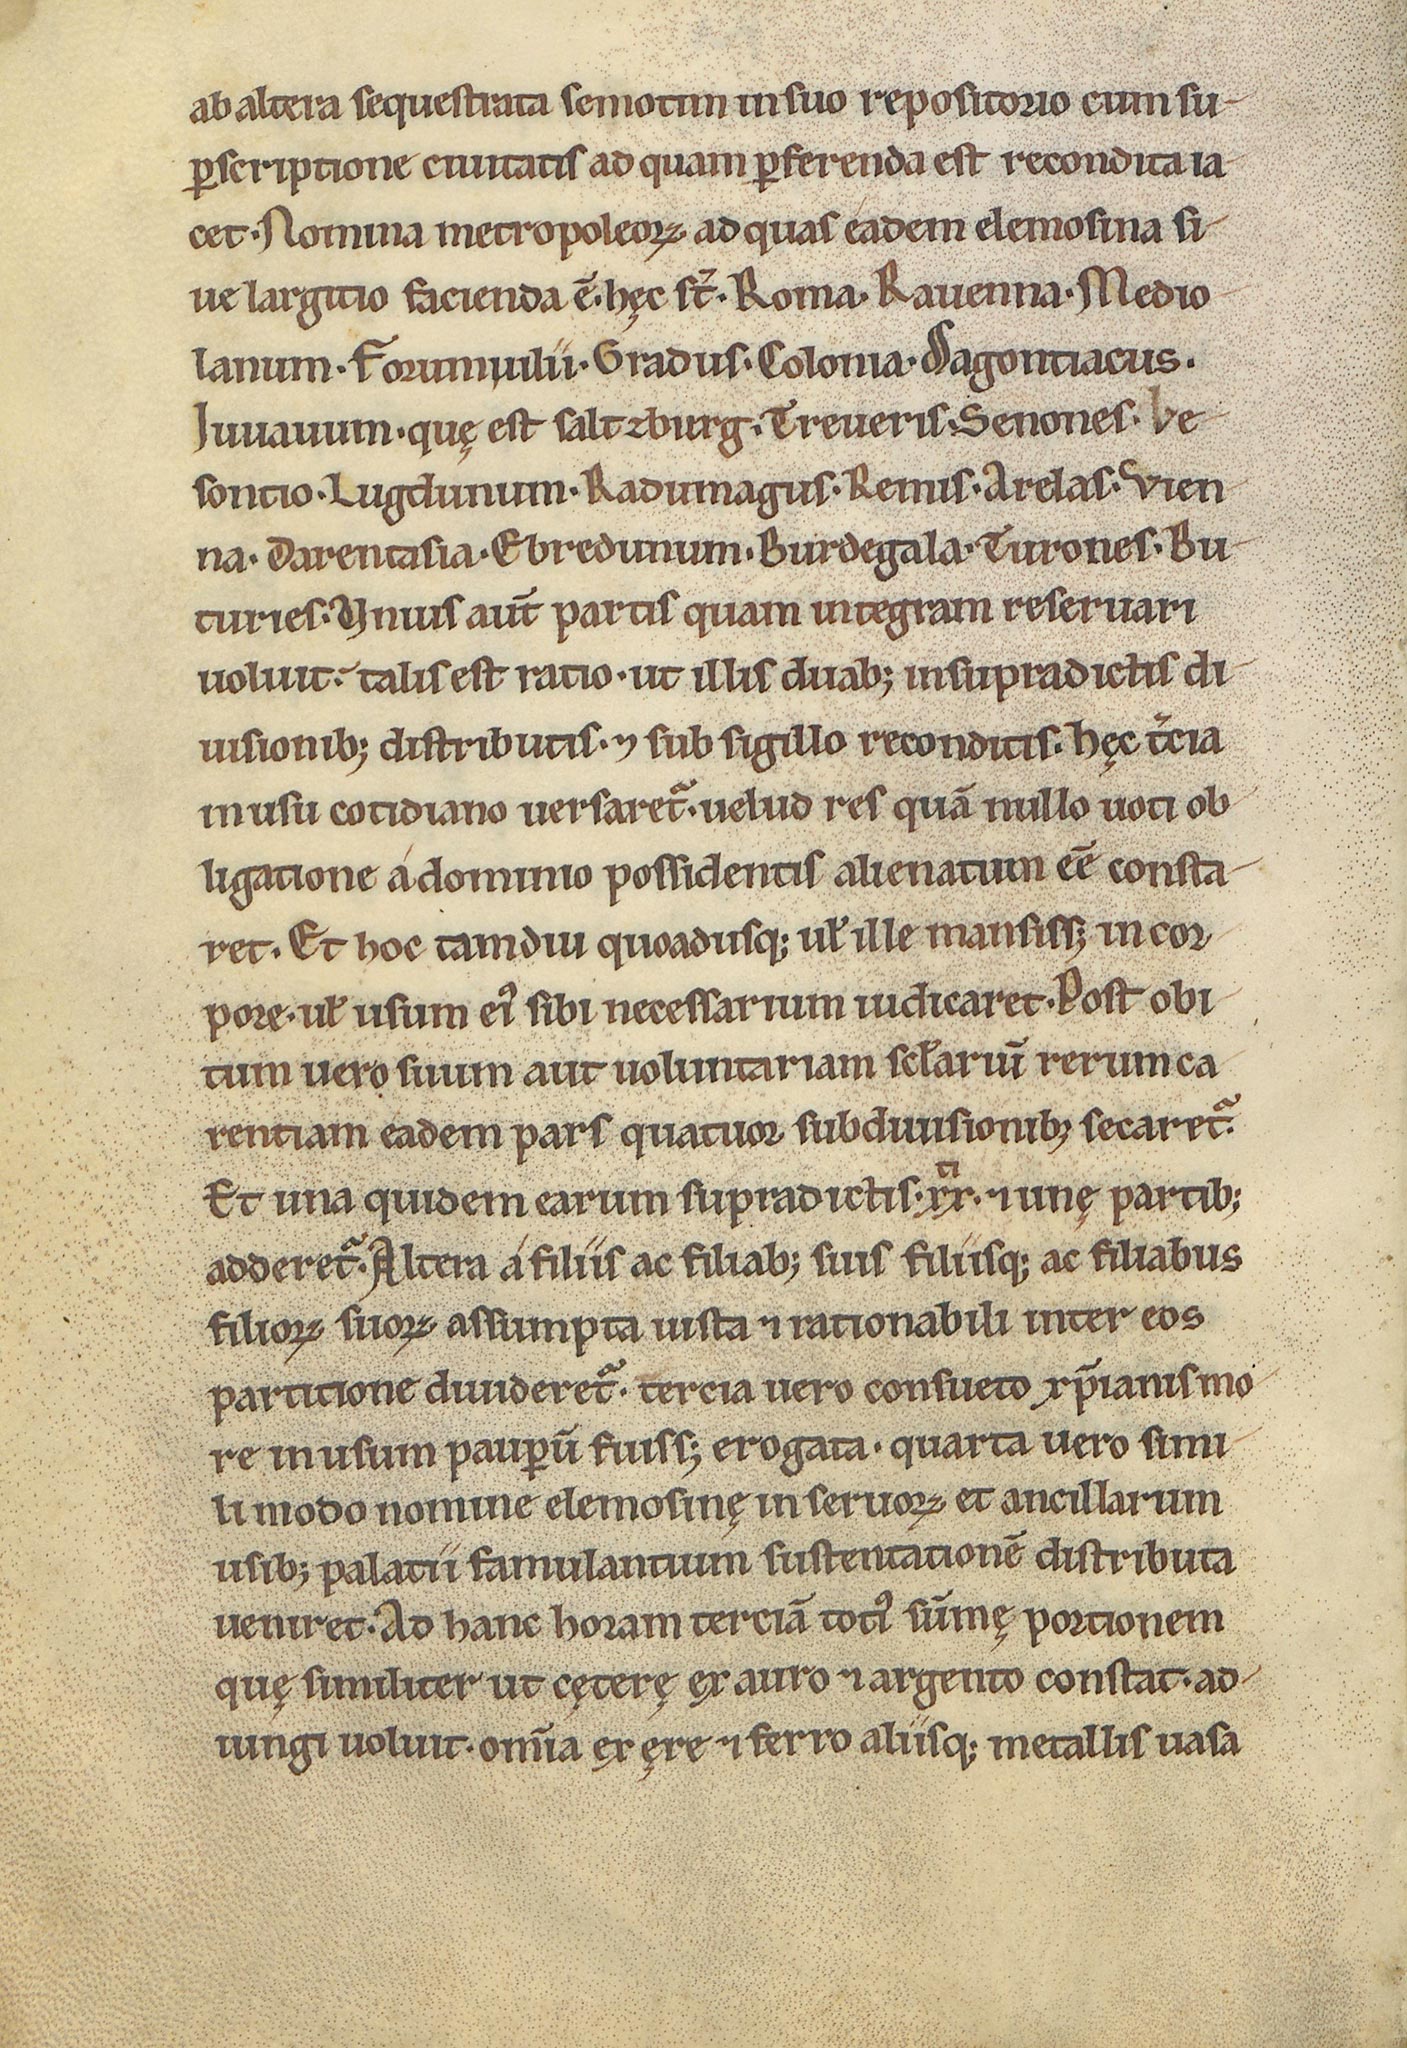 ab altera sequestrata semotim in suo repositorio cum su-
ꝑscriptione ciuitatis ad quam ꝑferenda est recondita ia-
cet. Nomina metropoleoꝝ ad quas eadem elemosina si-
ue largitio facienda ē. hęc st̄. Roma. Rauenna. Medio-
lanum. Forumiulii. Gradus. Colonia. Magontiacus.
Iuuauum. quę est saltzburg. Treueris. Senones. Ve-
sontio. Lugdunum. Radumagus. Remis. Arelas. Vien
na. Darentasia. Ebredunum. Burdegala. Turones. Bu-
turies. Vnius aut̄ partis quam integram reseruari
uoluit. talis est ratio. ut illis duab; in supradictis di-
uisionib; distributis. ⁊ sub sigillo reconditis. hęc t̄cia
in usu cotidiano uersaret᷑. uelud res quā nullo uoti ob-
ligatione á dominio possidentis alienatum eē consta-
ret. Et hoc tamdiu quoadusq; uƚ ille mansiss; in cor-
pore. uƚ usum eiꝰ sibi necessarium iudicaret. Post obi-
tum uero suum aut uoluntariam scƚariū rerum ca-
rentiam eadem pars quatuor subdiuisionib; secaret᷑.
Et una quidem earum supradictis. xxti. ⁊ unę partib;
adderet᷑. Altera á filiis ac filiab; suis filiisq; ac filiabus
filioꝝ suoꝝ assumpta iusta ⁊ rationabili inter eos
partitione diuideret᷑. tercia uero consueto xp̄ianis mo-
re in usum pauꝑū fuiss; erogata. quarta uero simi-
li modo nomine elemosinę in seruoꝝ et ancillarum
usib; palatii famulantium sustentationē distributa
ueniret. Ad hanc horam terciā totiꝰ sūmę portionem
quę similiter ut cęterę ex auro ⁊ argento constat. ad-
iungi uoluit. om̄ia ex ęre ⁊ ferro aliisq; metallis uasa